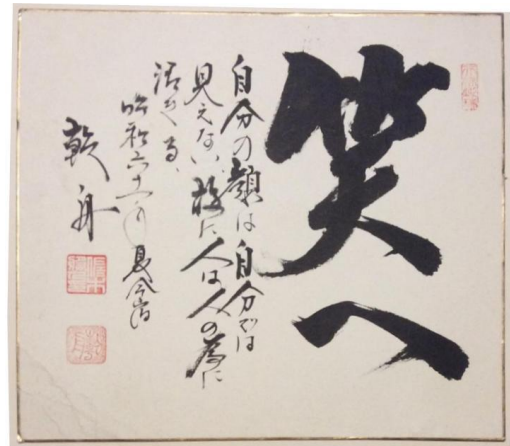 笑へ
自分の顔は自分では
見えない、故に人は人の為に
活きる、
昭和六十一年夏
乾舟